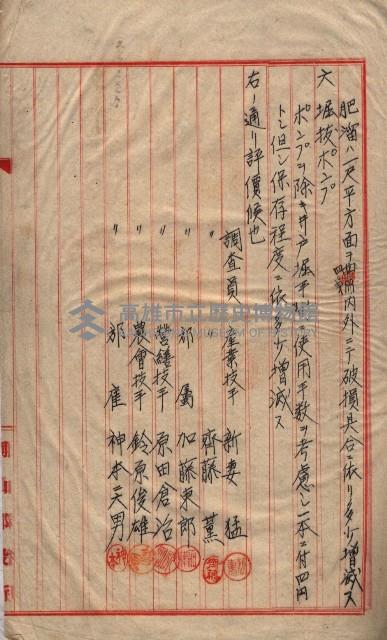 肥溜ハ一尺平方面ヲ四円内外ニテ破損具合ニ依リ多少増減ス
六 堀抜ポンプ
ポンプヲ除キ井戸堀手 使用手数ヲ考慮シ一本ニ付四円
トシ但シ保存程度ニ依リ多少増減ス
右ノ通リ評價候也
調査員 産業技手 新妻 猛
〃 〃 齊藤 薫
〃 郡屬 加藤東郎
〃 營繕技手 原田倉治
〃 農會技手 鈴原俊雄
〃 郡雇 神本二男
高雄市立歷史博物館
MUSEUM OF HISTORY